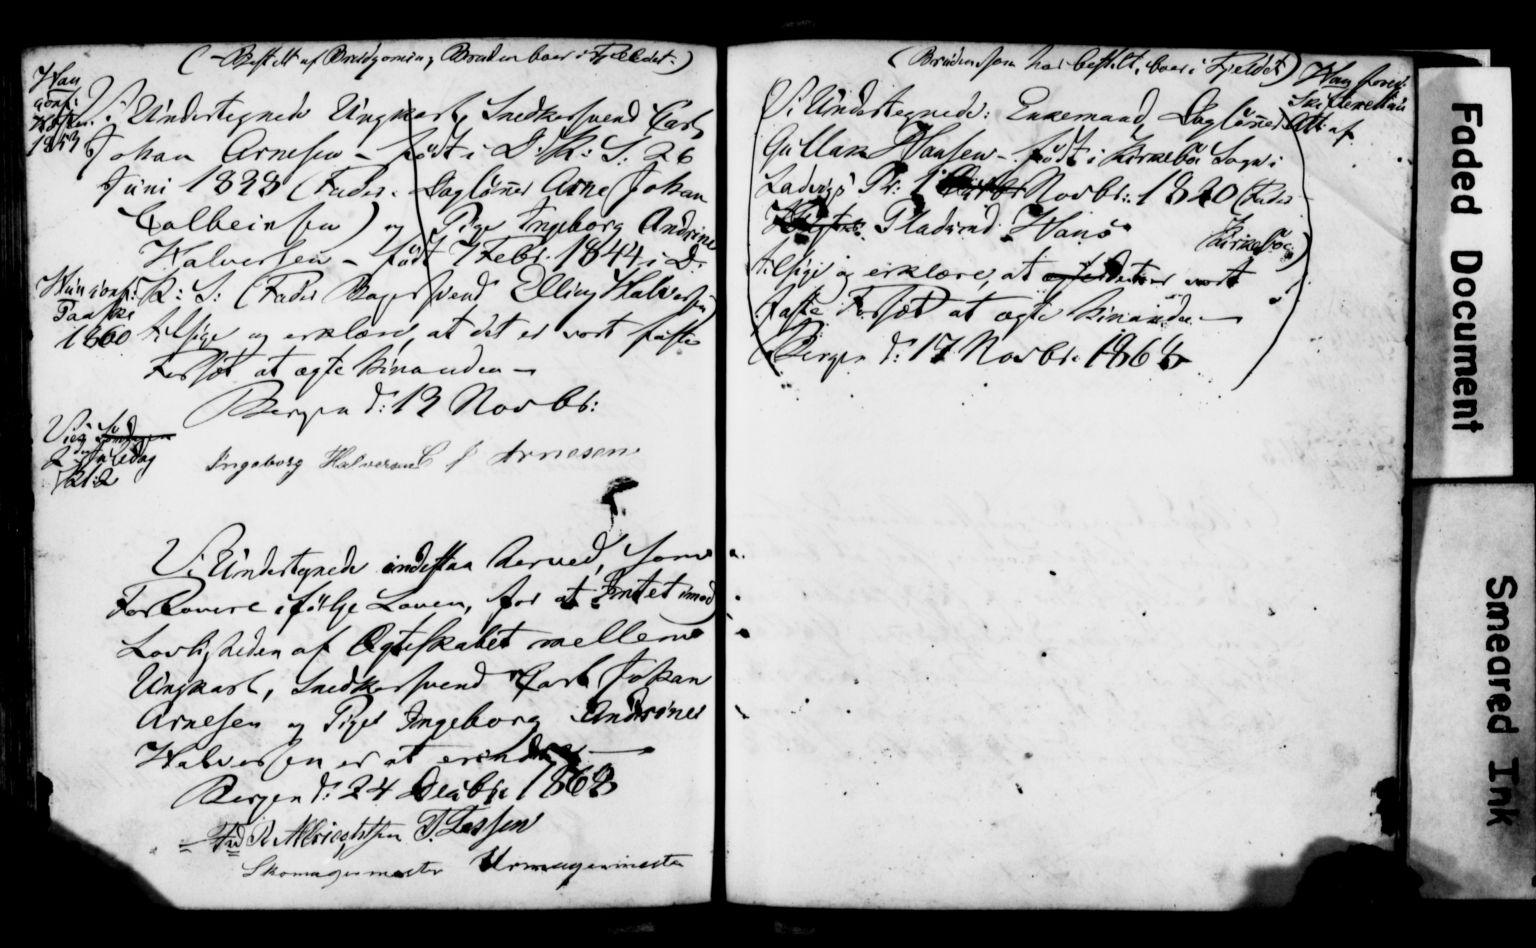 (Bestilt af Brudgommen, Bruden boer i Fjeldet.)
Han
conf:
1853
Vi Undertegnede Ungkarl, Snedkersvend Carl
Johan Arnesen – født i D: K: S: 26
Juni 1828 (Fader: Dagløner Arne Johan
Colbeinsen) og Pige Ingeborg Andrine
Halversen – født 7 Febr. 1844 i D.
K: S: (Fader Bagersvend Elling Halversen)
tilsige og erklære, at det er vort faste
Forsæt at ægte hinanden –
Bergen d: 13 Novbr:
Hun conf:
Paaske
1860
Ingeborg Halversen C J Arnesen
Viet
2den Juledag
Kl: 2
Vi Undertegnede indestaa herved, som
Forlovere ifølge Loven, for at Intet imod
Lovligheden af Ægteskabet mellem
Ungkarl, Snedkersvend Carl Johan
Arnesen og Pige Ingeborg Andrine
Halversen er at erindre –
Bergen d: 24 Decbr 1868
Skomagermester Urmagermester
(Bruden som har bestilt, boer i Fjeldet)
Han forev:
Skifteret
Att: af
Vi Undertegnede: Enkemand, Dagløner
Gullak Hansen – født i Kirkebø Sogn i
Ladvigs Pr: 1 Novbr: 1820 (Fader
Pladsmd Hans
Kirkebø)
tilsige og erklære, at det er vort
faste Forsæt at ægte hinanden –
Bergen d: 17 Novbr. 1868
Faded Document
Smeared Ink